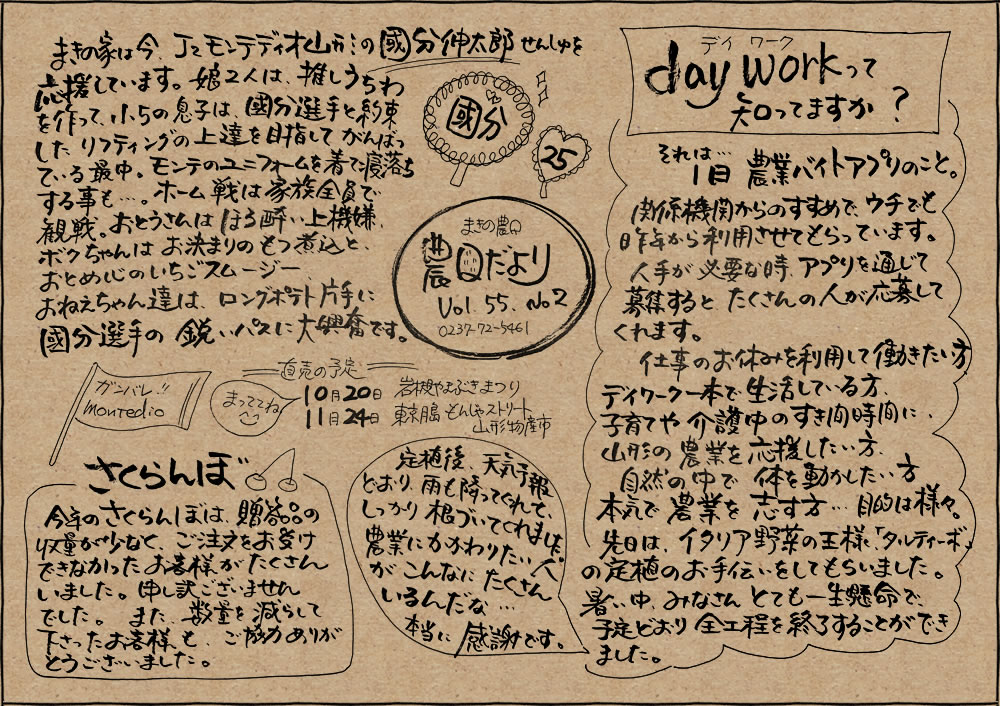 まきの家は今、J2モンテディオ山形の國分伸太郎せんしゅを
応援しています。娘2人は、推しうちわ
を作って、小5の息子は、國分選手と約束
した リフティングの上達を目指して がんばっ
ている最中。モンテのユニフォームを着て寝落ち
する事も…。ホーム戦は家族全員で
観戦。おとうさんは ほろ酔い上機嫌、
ボクちゃんは お決まりのもつ煮込と、
おとめ心のいちごスムージー
おねえちゃん達は、ロングポテト片手に
國分選手の 鋭いパスに大興奮です。
國分
25
まきの農園
農園だより
Vol.55. No2
0237-72-5461
直売の予定
10月20日 岩根沢やまぶきまつり
11月24日 東京
山形物産市
ガンバレ!!
montedio
まっててね
さくらんぼ
今年のさくらんぼは、贈答品の
収量が少なく、ご注文をお受け
できなかったお客様がたくさん
いました。申し訳ございません
でした。また、数量を減らして
下さったお客様も、ご協力ありが
とうございました。
定植後、天気予報
どおり、雨も降ってくれて、
しっかり根づいてくれました。
農業にかかわりたい人
が こんなに たくさん
いるんだな…
本当に 感謝です。
デイ ワーク
day workって
知ってますか?
それは…
1日 農業バイトアプリのこと。
関係機関からのすすめで、ウチでも
昨年から利用させてもらっています。
人手が必要な時、アプリを通じて
募集すると、たくさんの人が応募して
くれます。
仕事のお休みを利用して働きたい方
デイワーク一本で生活している方、
子育てや介護中のすき間時間に、
山形の農業を応援したい方、
自然の中で 体を動かしたい方
本気で農業を志す方… 目的は様々。
先日は、イタリア野菜の王様、「タルティーボ」
の定植のお手伝いをしてもらいました。
暑い中、みなさんとても一生懸命で、
予定どおり全工程を終了することができ
ました。